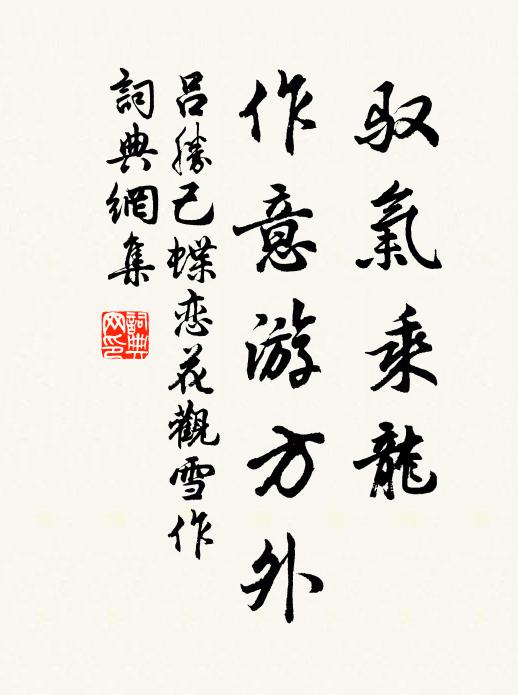 驭氣乘龍
作意游方外
吕勝己蝶恋花觀雪作
詞典網集
詞典网印